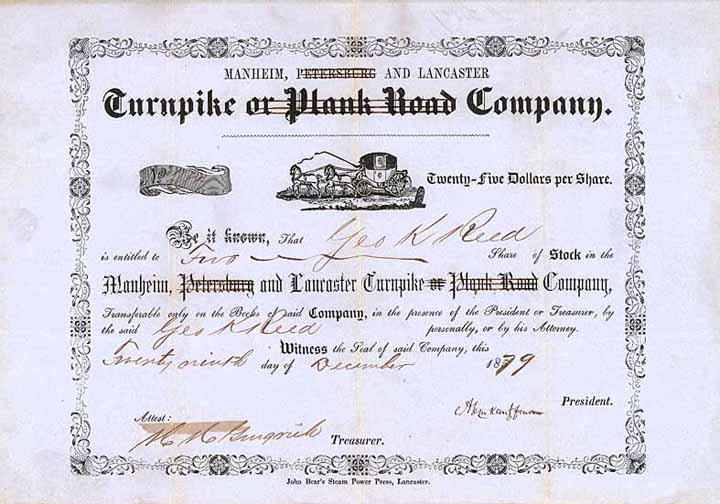 MANHEIM, PETERSBURG AND LANCASTER
Turnpike or Plank Road Company.
Twenty-Five Dollars per Share.
Be it known, That Geo K Reed
is entitled to Two Share of Stock in the
Manheim, Petersburg and Lancaster Turnpike or Plank Road Company,
Transferable only on the Books of said Company, in the presence of the President or Treasurer, by
the said Geo K Reed personally, or by his Attorney.
Witness the Seal of said Company, this
Twenty ninth day of December 1879
President.
Attest:
Treasurer.
John Bear's Steam Power Press, Lancaster.